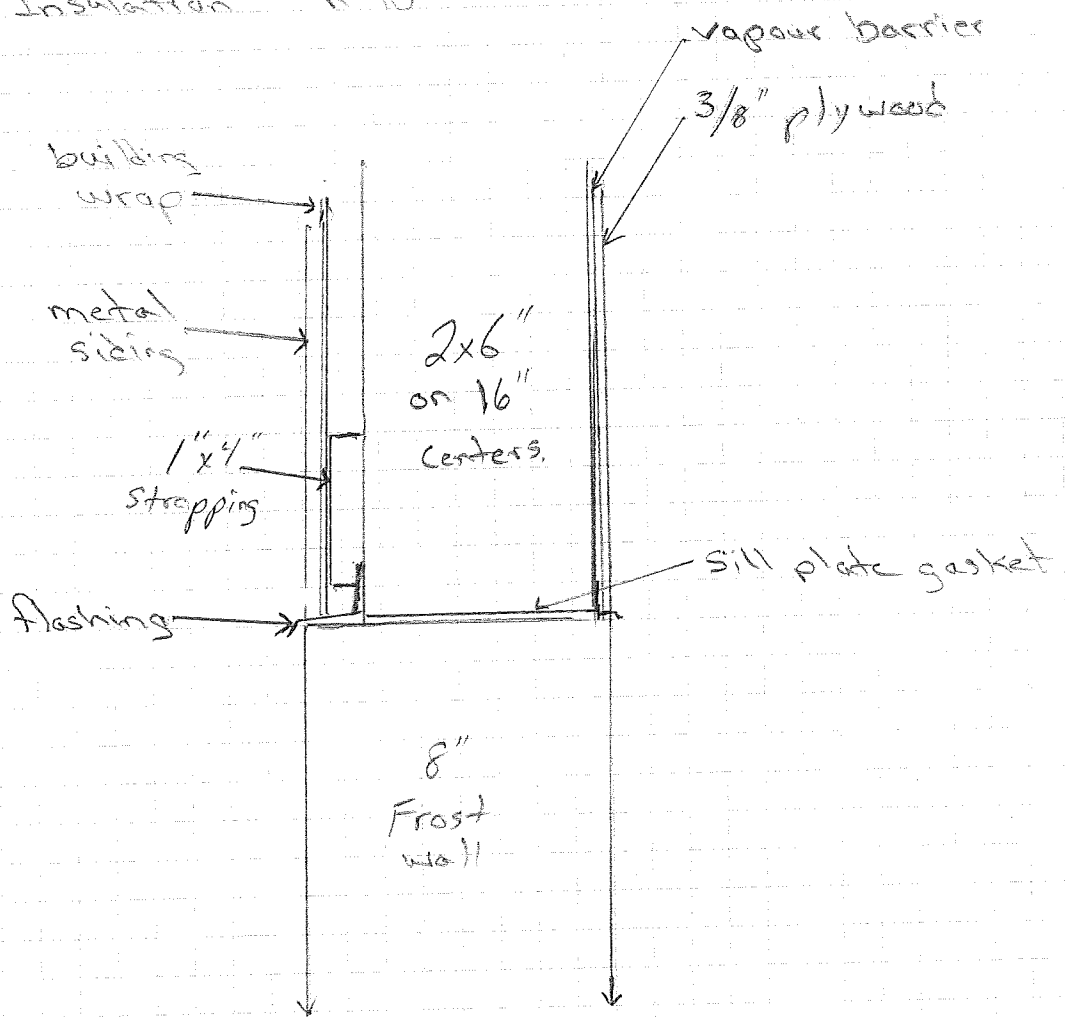 Insulation R 10
vapour barrier
3/8" plywood
building
wrap
metal
siding
2x6"
on 16"
centers.
1"x4"
strapping
sill plate gasket
flashing
8"
Frost
wall